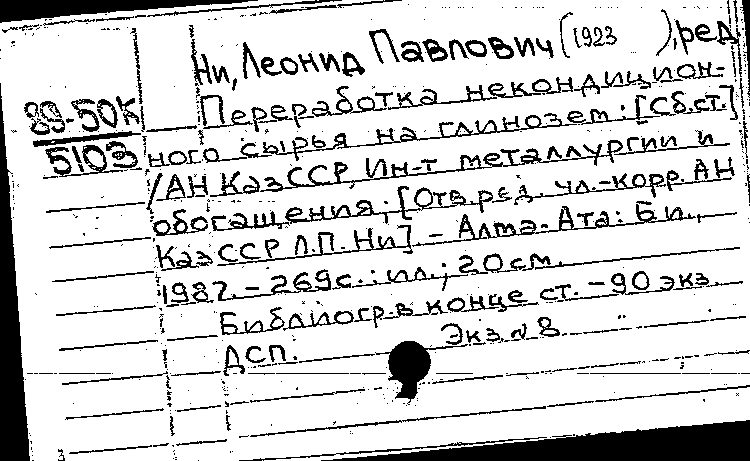 Ни, Леонид Павлович (1923 ), ред
89-50К
5103
Переработка некондицион-
ного сырья на глинозем: [Сб.ст.]
/АН КазССР, Ин-т металлургии и
обогащения; [Отв.ред. чл.-корр. АН
КазССР Л.П. Ни]. - Алма-Ата: Б и.,
1987. - 269с.: ил.; 20 см.
Библиогр. в конце ст. - 90 экз.
ДСП. Экз. № 8